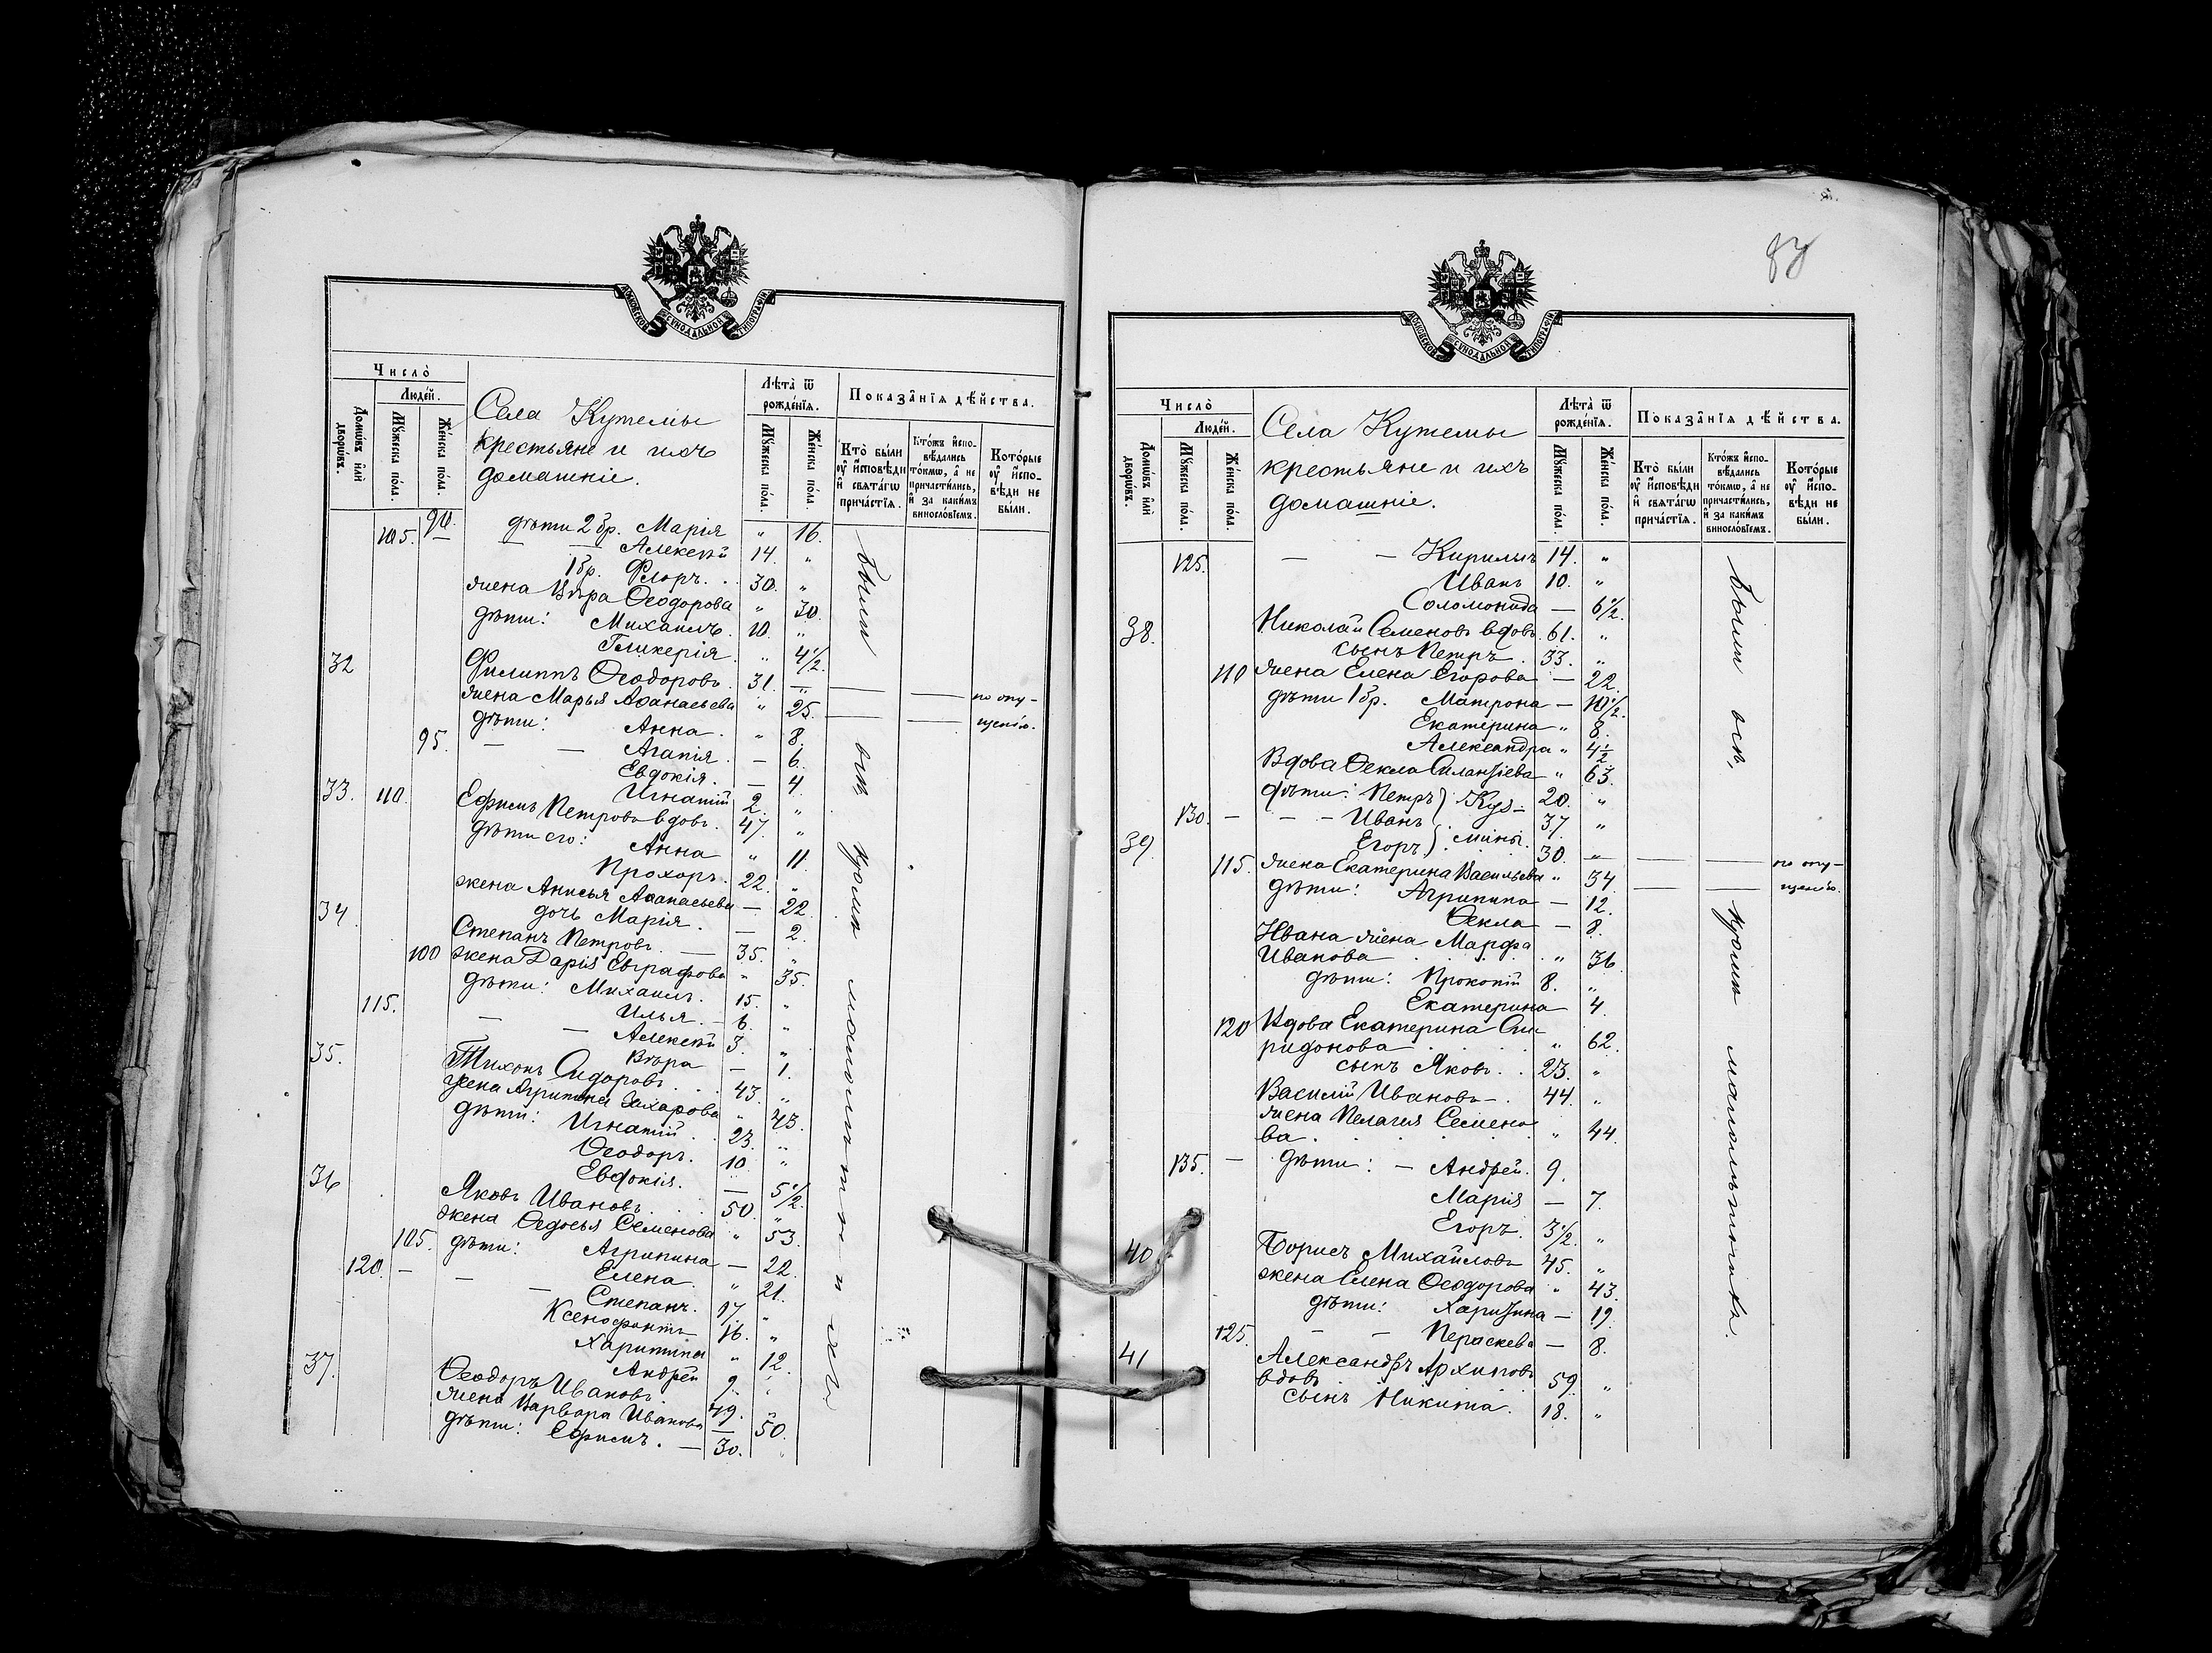 МОСКОВСКОЙ СУНОДАЛЬНОЙ ТИПОГРАФІИ
Число̀
Людéй.
Домѡ́въ и҆лѝ дворѡ́въ.
Мꙋ́жеска по́ла.
Же́нска по́ла.
Села Кутемы
крестьяне и ихъ
домашніе.
Лѣта̀ ѿ рожде́нїѧ.
Мꙋ́жеска по́ла.
Же́нска по́ла.
Показа̑нїѧ дѣ́йства.
Кто̀ бы́ли ᲂу҆ и҆сповѣди и҆ свѧта́гѡ прича́стїѧ.
Кто́жъ и҆спо-вѣдались то́кмѡ, а҆ не причасти́лись, и҆ за каки́мъ винослѡ́вїемъ.
Кото́рые ᲂу҆ и҆спо-вѣди не бы́ли.
105. 90. дѣти 2 бр. Марія " 16.
— — Алексѣй 14. "
1 бр. Флоръ. 30. "
жена Вѣра Ѳеодорова " 30.
дѣти: Михаилъ. 10. "
Гликерія. " 4 1/2.
32 Филиппъ Ѳеодоровъ. 31. — — — по опу-
жена Марья Аѳанасьева " 25. — — щенію.
дѣти: Анна. " 8.
95. — — Агапія. — 6.
Евдокія. — 4.
33. 110. Игнатій 2. "
Ефимъ Петровъ вдовъ. 47. "
дѣти его: Анна " 11.
Прохоръ. 22. "
жена Анисья Аѳанасьева — 22.
34. дочь Марія. — 2.
Степанъ Петровъ. — 35. "
100 жена Дарія Евграфова " 35.
дѣти: Михаилъ. 15. "
115. — Илья. — 6. "
— Алексѣй 3. "
35. Вѣра — 1.
Тихонъ Сидоровъ. 43. "
жена Агрипина Захарова " 43.
дѣти: Игнатій. 23. "
Ѳеодоръ. 10. "
36 Евдокія. — 5 1/2.
Яковъ Ивановъ. 50. "
жена Ѳедосья Семенова " 53.
105. дѣти: Агрипина — 22.
120. — — Елена. " 21.
— Степанъ. 17. "
Ксенофонтъ 16. "
Харитина " 12.
37. Андрей 9. "
Ѳеодоръ Ивановъ. 49. "
жена Варвара Иванова — 50.
дѣти: Ефимъ. — 30. "
Были всѣ, кромѣ малолѣтнихъ.
МОСКОВСКОЙ СУНОДАЛЬНОЙ ТИПОГРАФІИ
Число̀
Людéй.
Домѡ́въ и҆лѝ дворѡ́въ.
Мꙋ́жеска по́ла.
Же́нска по́ла.
Села Кутемы
крестьяне и ихъ
домашніе.
Лѣта̀ ѿ рожде́нїѧ.
Мꙋ́жеска по́ла.
Же́нска по́ла.
Показа̑нїѧ дѣ́йства.
Кто̀ бы́ли ᲂу҆ и҆сповѣди и҆ свѧта́гѡ прича́стїѧ.
Кто́жъ и҆спо-вѣдались то́кмѡ, а҆ не причасти́лись, и҆ за каки́мъ винослѡ́вїемъ.
Кото́рые ᲂу҆ и҆спо-вѣди не бы́ли.
125. — — Кирилъ 14. "
Иванъ 10. "
Соломонида — 6 1/2.
38. Николай Семеновъ вдовъ. 61. "
сынъ Петръ. 33. "
110 жена Елена Егорова — 22.
дѣти 1 бр. Матрона — 10 1/2.
Екатерина " 8.
Александра " 4 1/2
Вдова Ѳекла Силантіева " 63.
дѣти: Петръ } Куз- 20. "
130. — — — Иванъ 37. "
39. Егоръ } мины. 30. "
115. жена Екатерина Васильева " 34. — — по опу-
дѣти: Агрипина — 12. — — щенію.
Ѳекла — 8.
Ивана жена Марфа
Иванова " 36
дѣти: Прокопій 8. "
Екатерина 4.
120 Вдова Екатерина Спи-
ридонова " 62.
сынъ Яковъ. 23. "
Василій Ивановъ — 44. "
жена Пелагея Семено-
ва " 44.
135. — дѣти: — Андрей. 9.
Марія — 7.
Егоръ. 3 1/2. "
40. Борисъ Михайловъ 45. "
жена Елена Ѳеодорова " 43.
дѣти: Харитина — 19.
125. — — Параскева — 8.
41 Александръ Архиповъ
вдовъ. 59. "
сынъ Никита. 18. "
Были всѣ, кромѣ малолѣтнихъ.